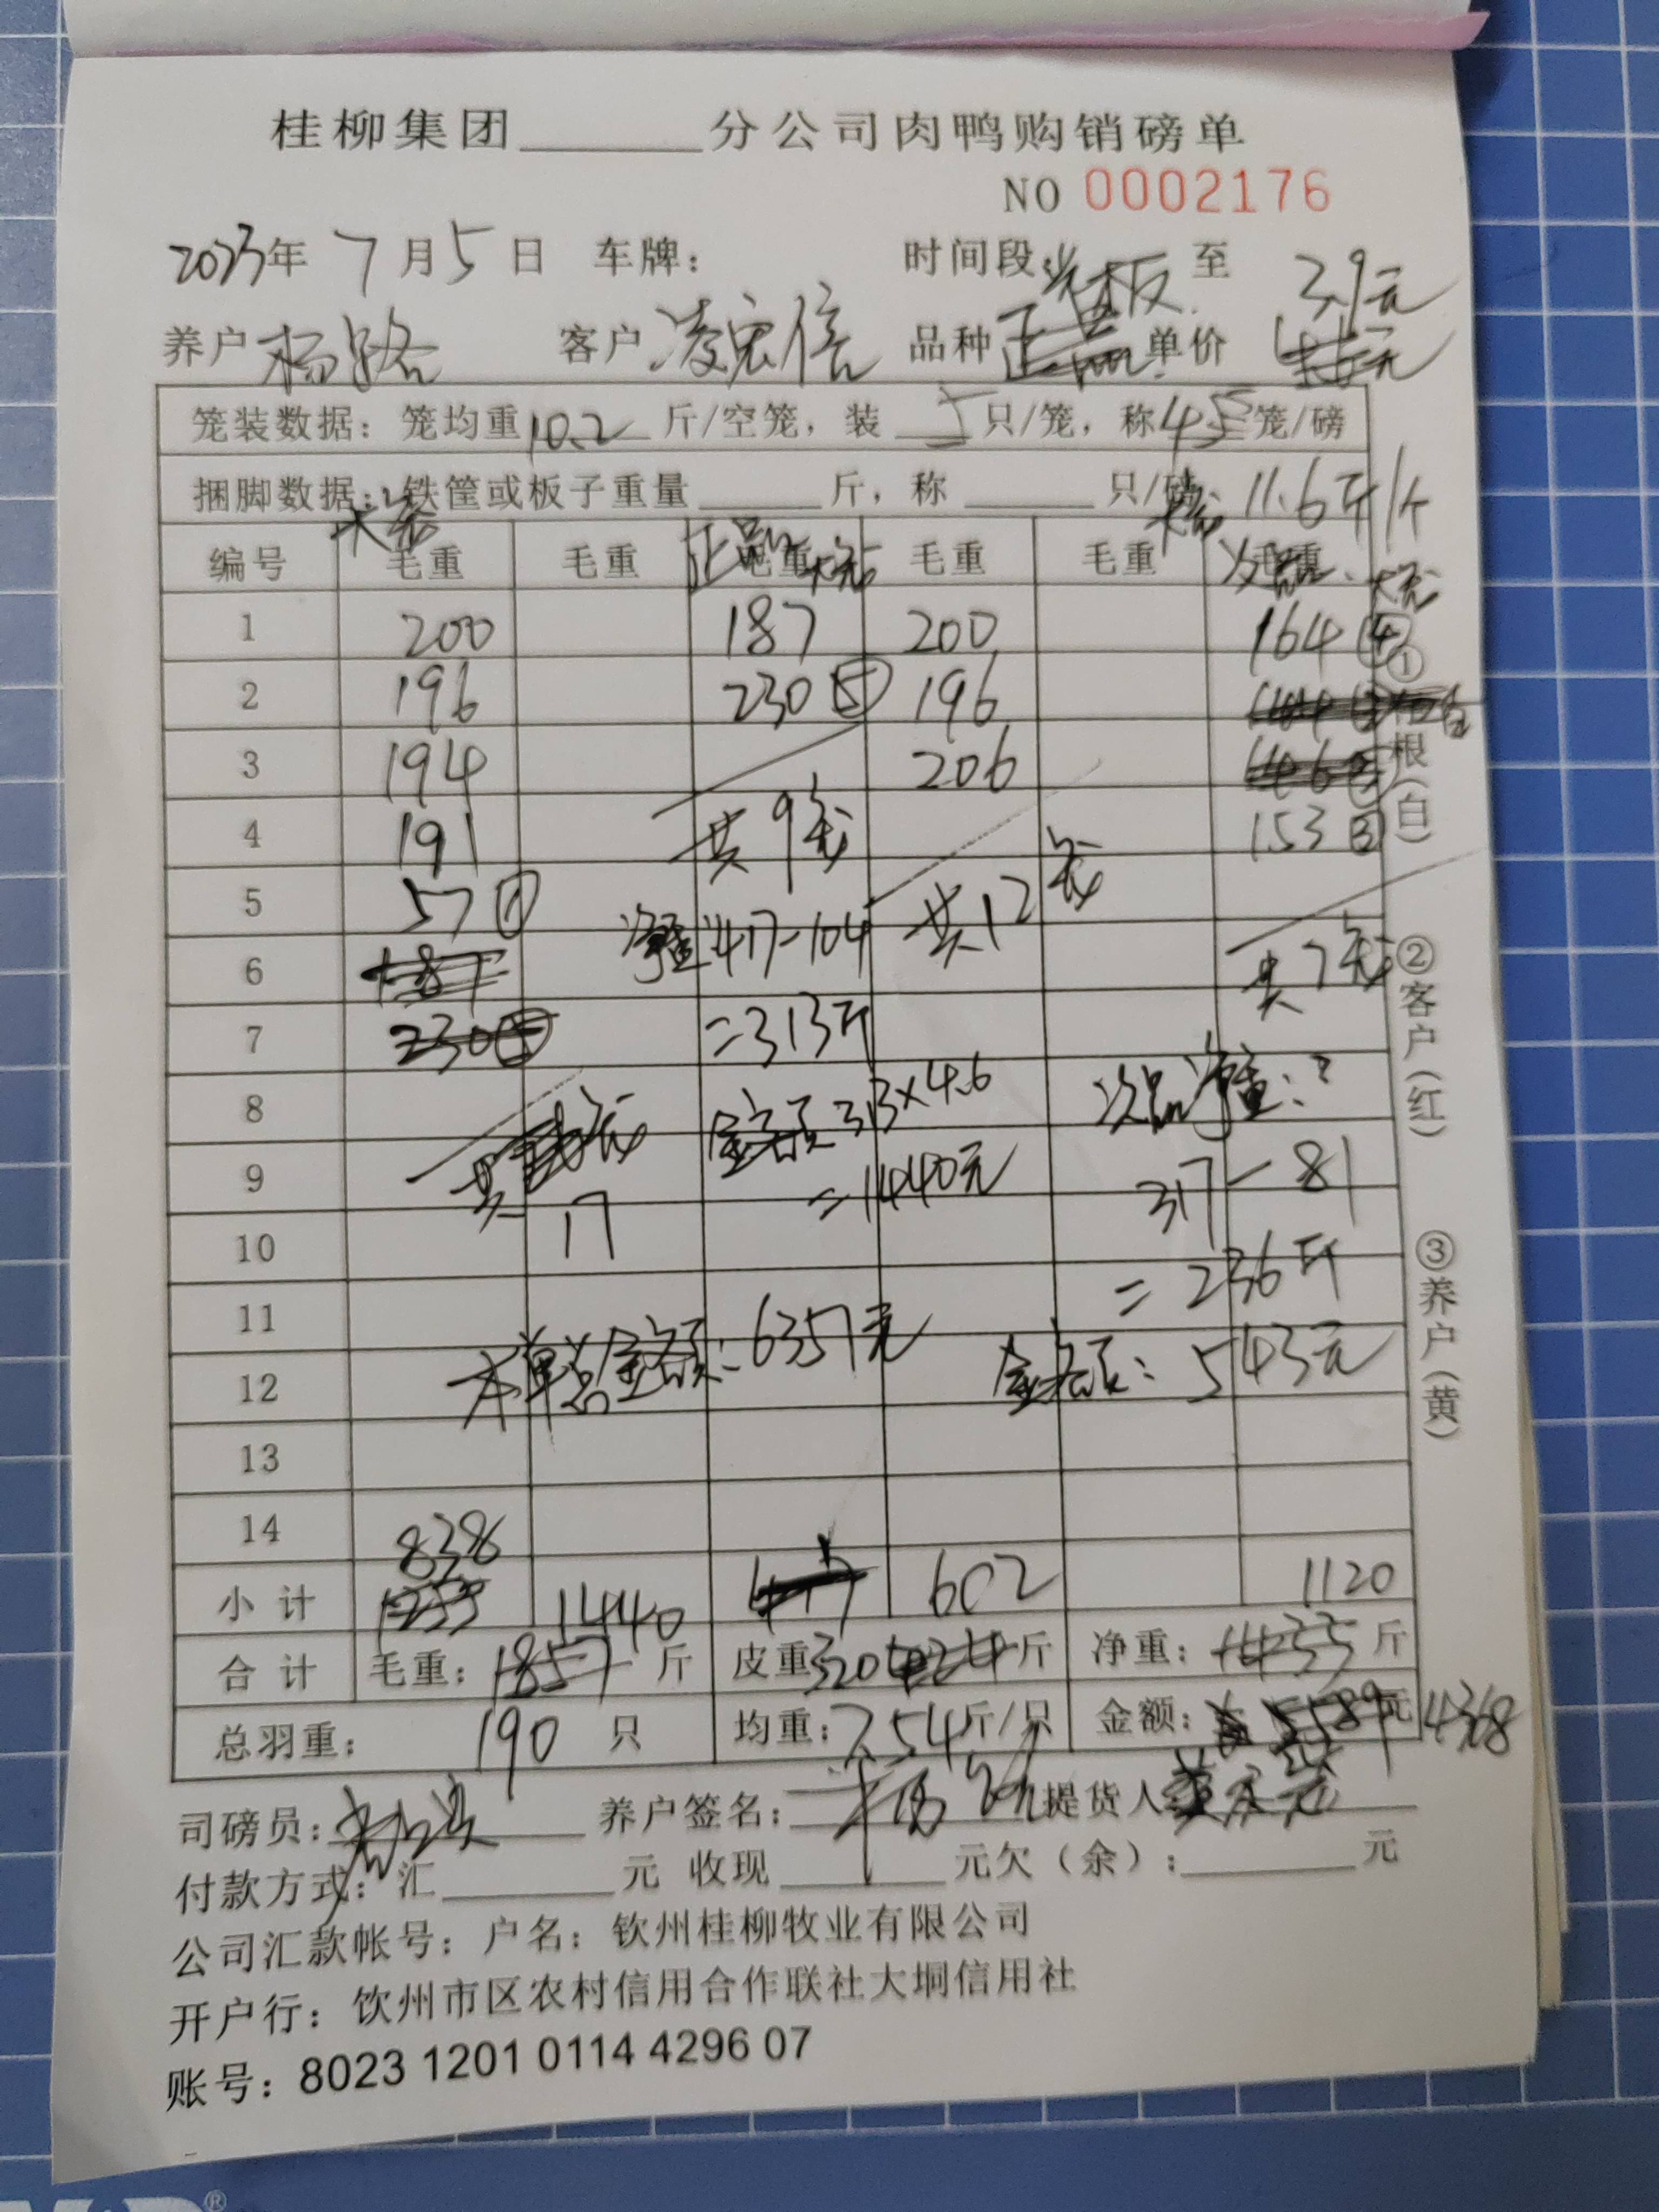 桂柳集团______分公司肉鸭购销磅单
NO 0002176
2023年 7月5日 车牌： 时间段： 至
光板 3.9元
养户 杨路 客户 凌宏信 品种 正品 单价
笼装数据：笼均重10.2斤/空笼，装 5 只/笼，称45笼/磅
捆脚数据：铁筐或板子重量______斤，称______只/磅
大笼 11.6斤/个
编号 毛重 毛重 毛重 毛重 毛重 毛重
1 200 187 200 164④
2 196 230⑤ 196
3 194 206
4 191 共9笼 153③
5 57① 净重417-104 共12笼
6 187 共7笼
7 230⑤ =313斤
8 金额313×4.6 次品净重：
9 共 =1440元 317-81
10 17 =236斤
11
12 本单总金额：6357元 金额：543元
13
14 838
小计 1255 1440 417 602 1120
合计 毛重：1857斤 皮重320 424斤 净重：1433斤
总羽重： 190 只 均重：7.54斤/只 金额：5589元 4368
司磅员： 养户签名： 提货人
付款方式：汇______元 收现______元欠（余）：______元
公司汇款帐号：户名：钦州桂柳牧业有限公司
开户行：饮州市区农村信用合作联社大垌信用社
账号：8023 1201 0114 4296 07
①存根（白）
②客户（红）
③养户（黄）